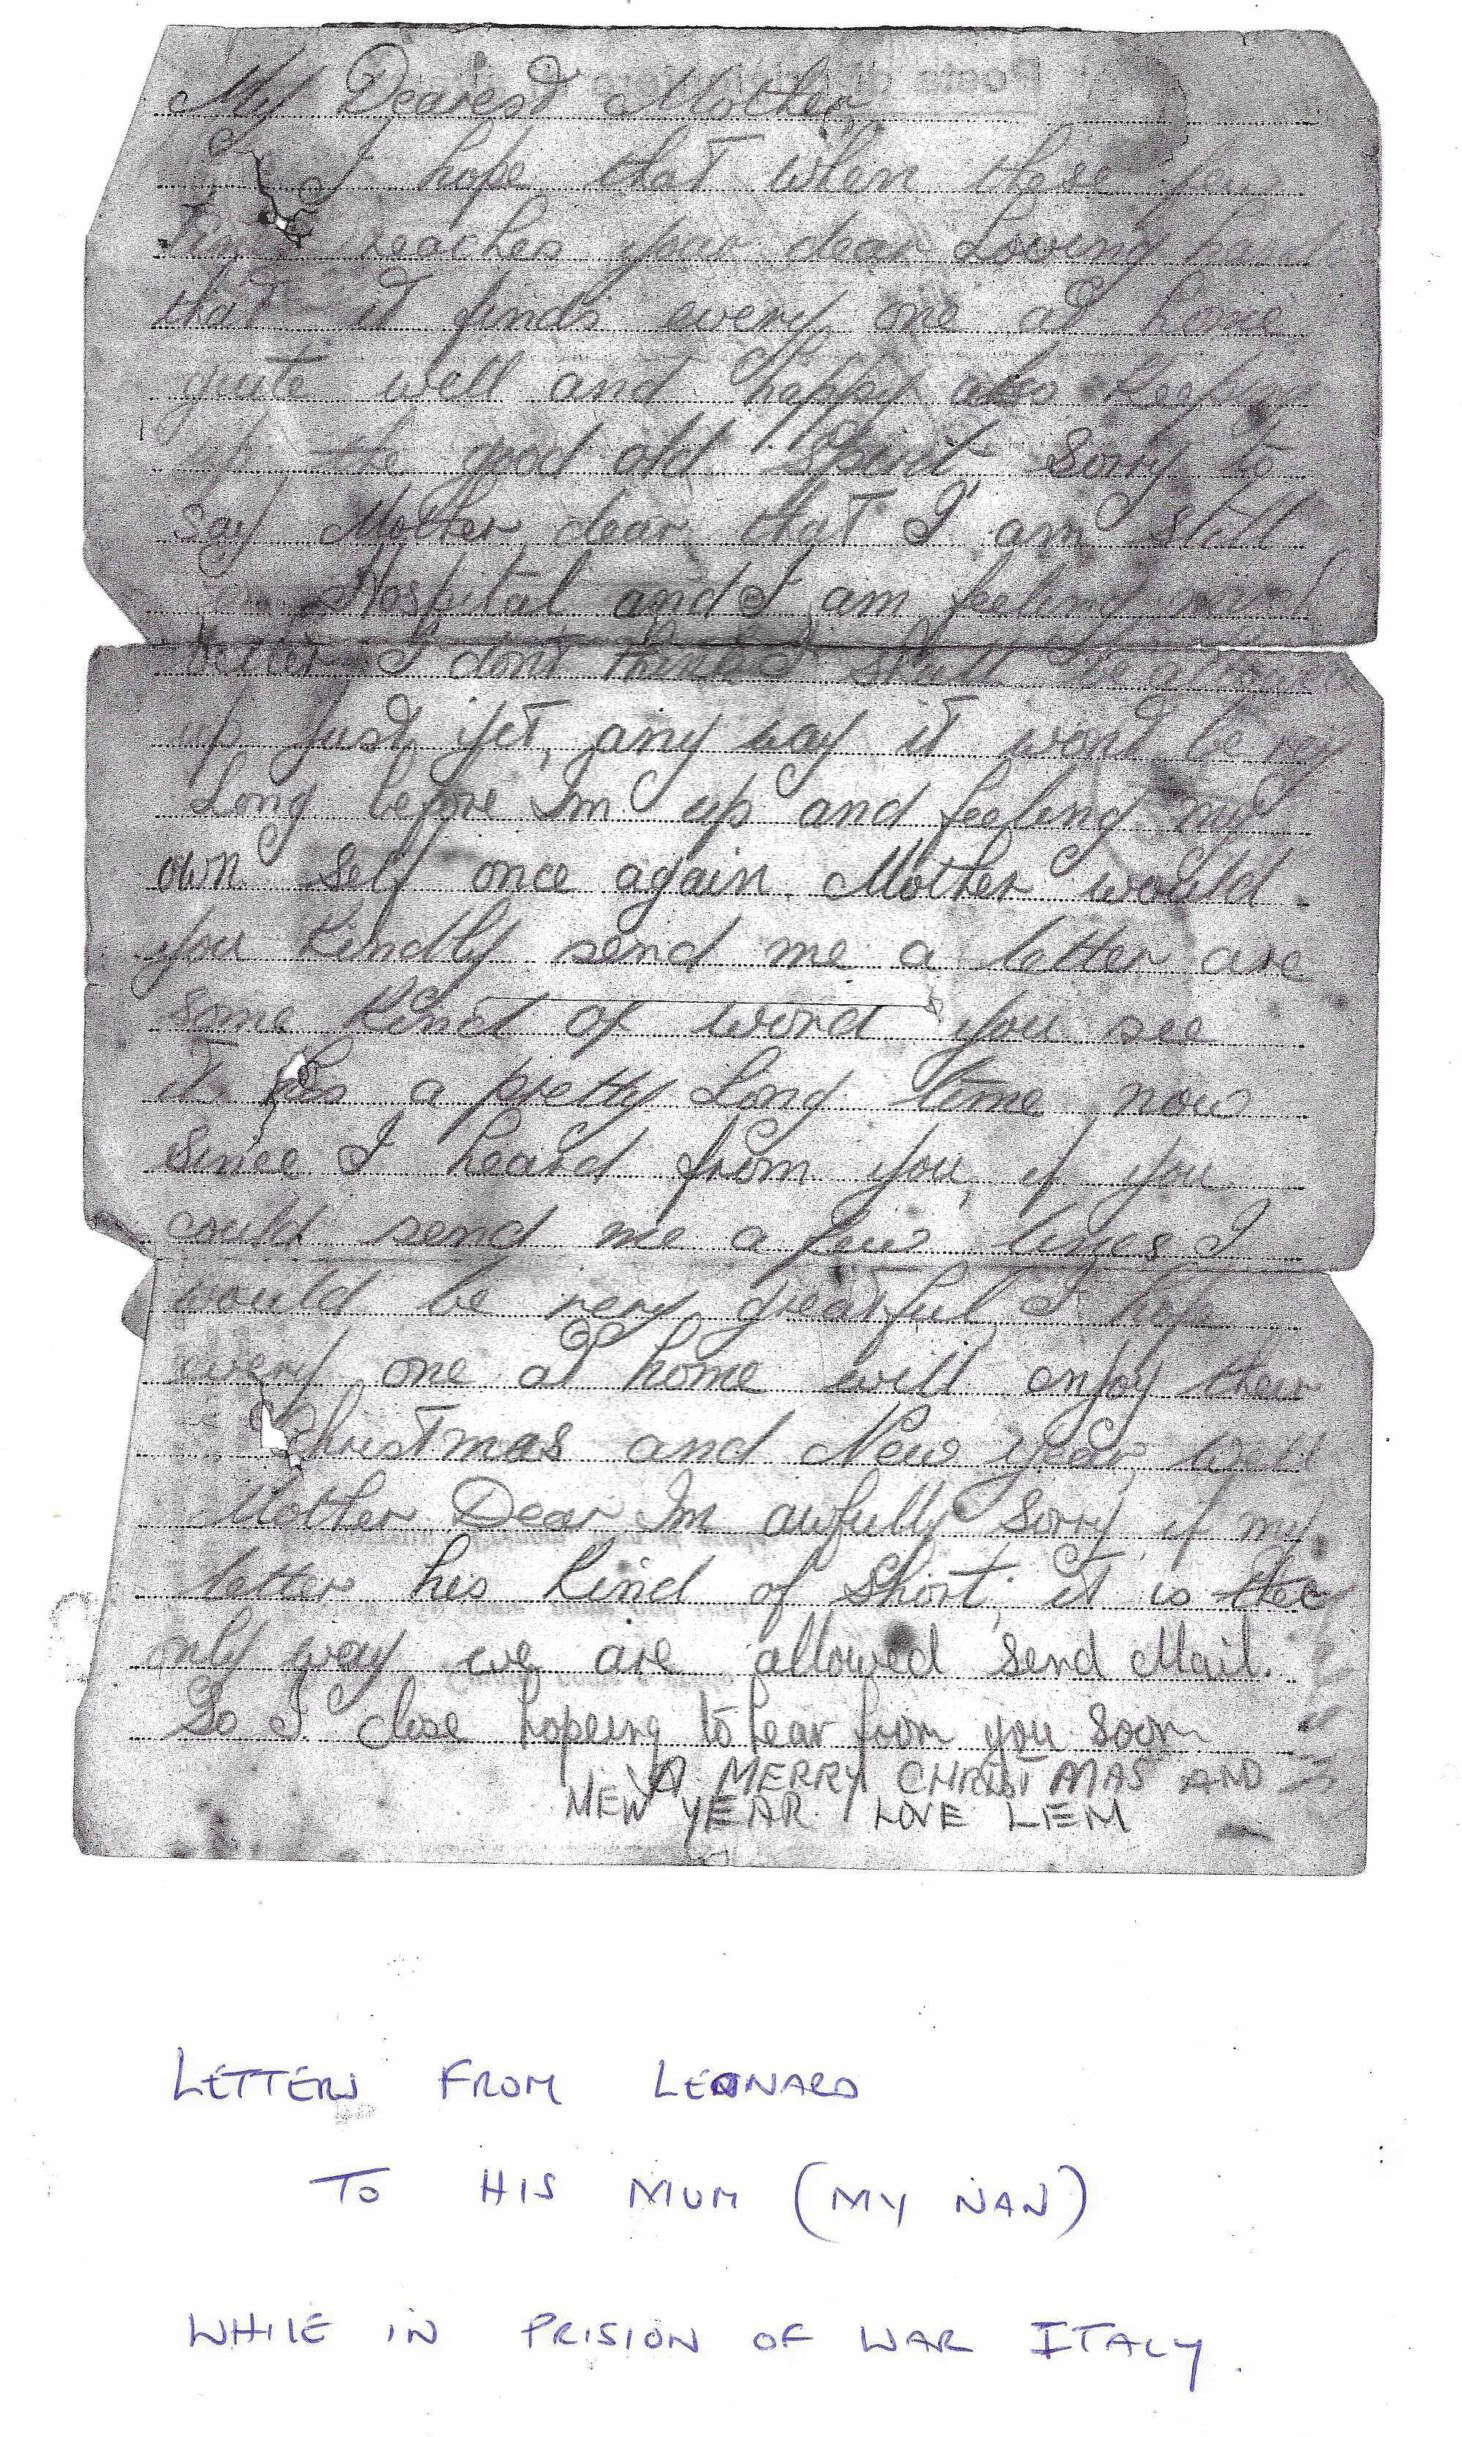 My Dearest Mother,
I hope that when these few
lines reaches your dear Loving hands
that it finds every one at home
quite well and happy also Keeping
up the good old spirit Sorry to
say Mother dear that I am still
in Hospital and I am feeling much
better I dont think I shall be allowed
up just yet, any way it wont be very
Long before Im up and feeling my
own self once again. Mother would
you Kindly send me a letter are
some Kind of word you see
it his a pretty Long time now
since I heard from you, if you
could send me a few lines I
would be very greatful I hope
every one at home will enjoy their
Christmas and New Year well
Mother Dear Im awfully Sorry if my
letter his Kind of short, it is the
only way we are allowed send Mail.
So I close hopeing to hear from you soon
A MERRY CHRISTMAS AND
NEW YEAR LOVE LEM
LETTERS FROM LEONARD
TO HIS MUM (MY NAN)
WHILE IN PRISION OF WAR ITALY.